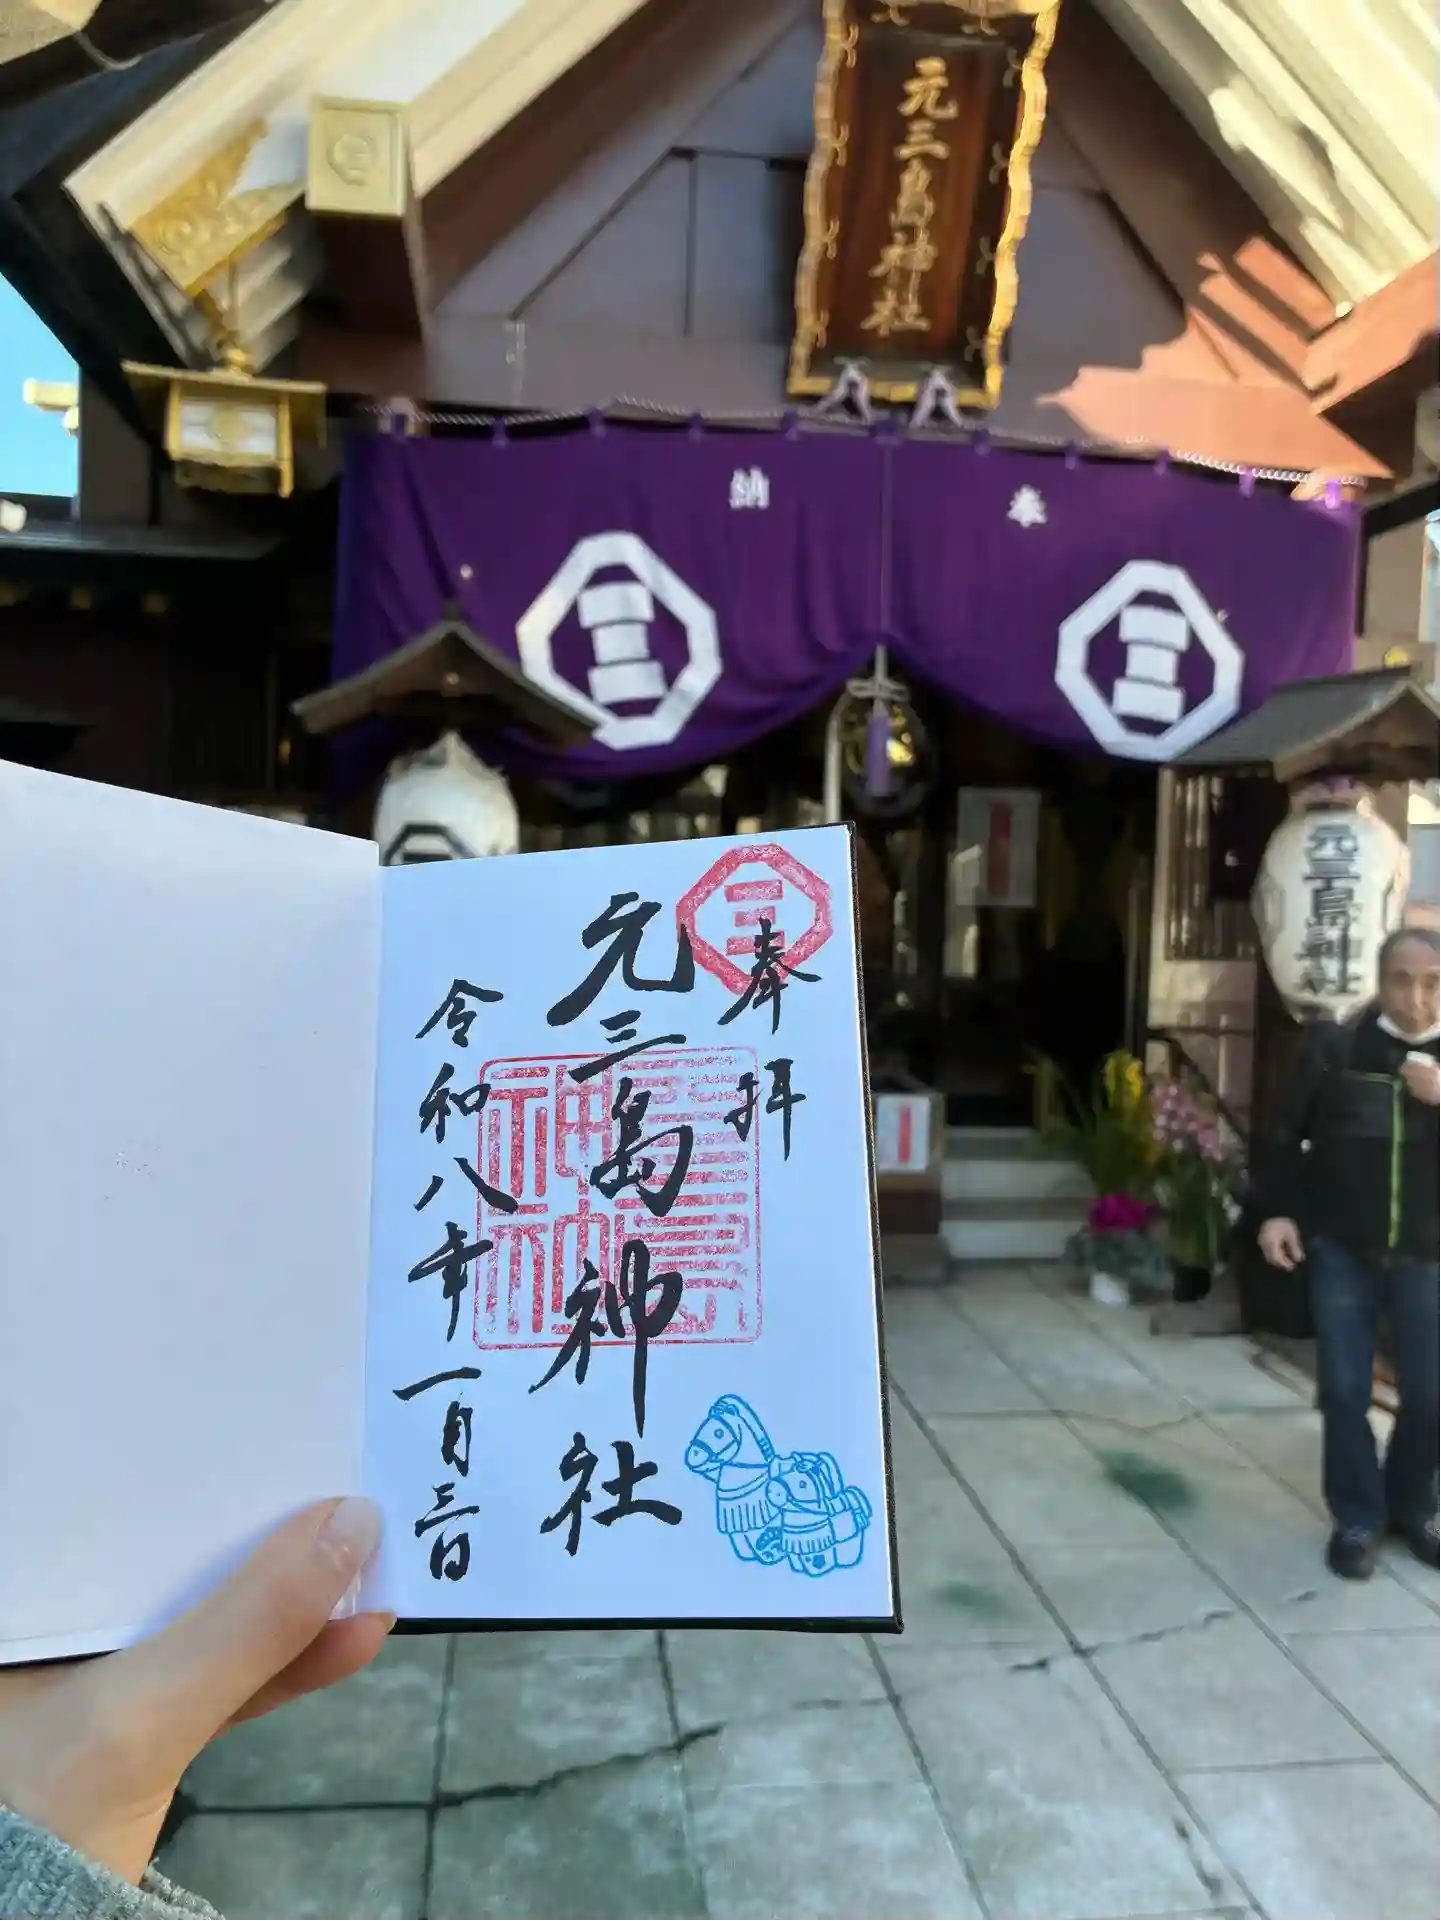 元三島神社
奉
納
三
三
元三島神社
三
奉拝
元三島神社
令和八年一月三日